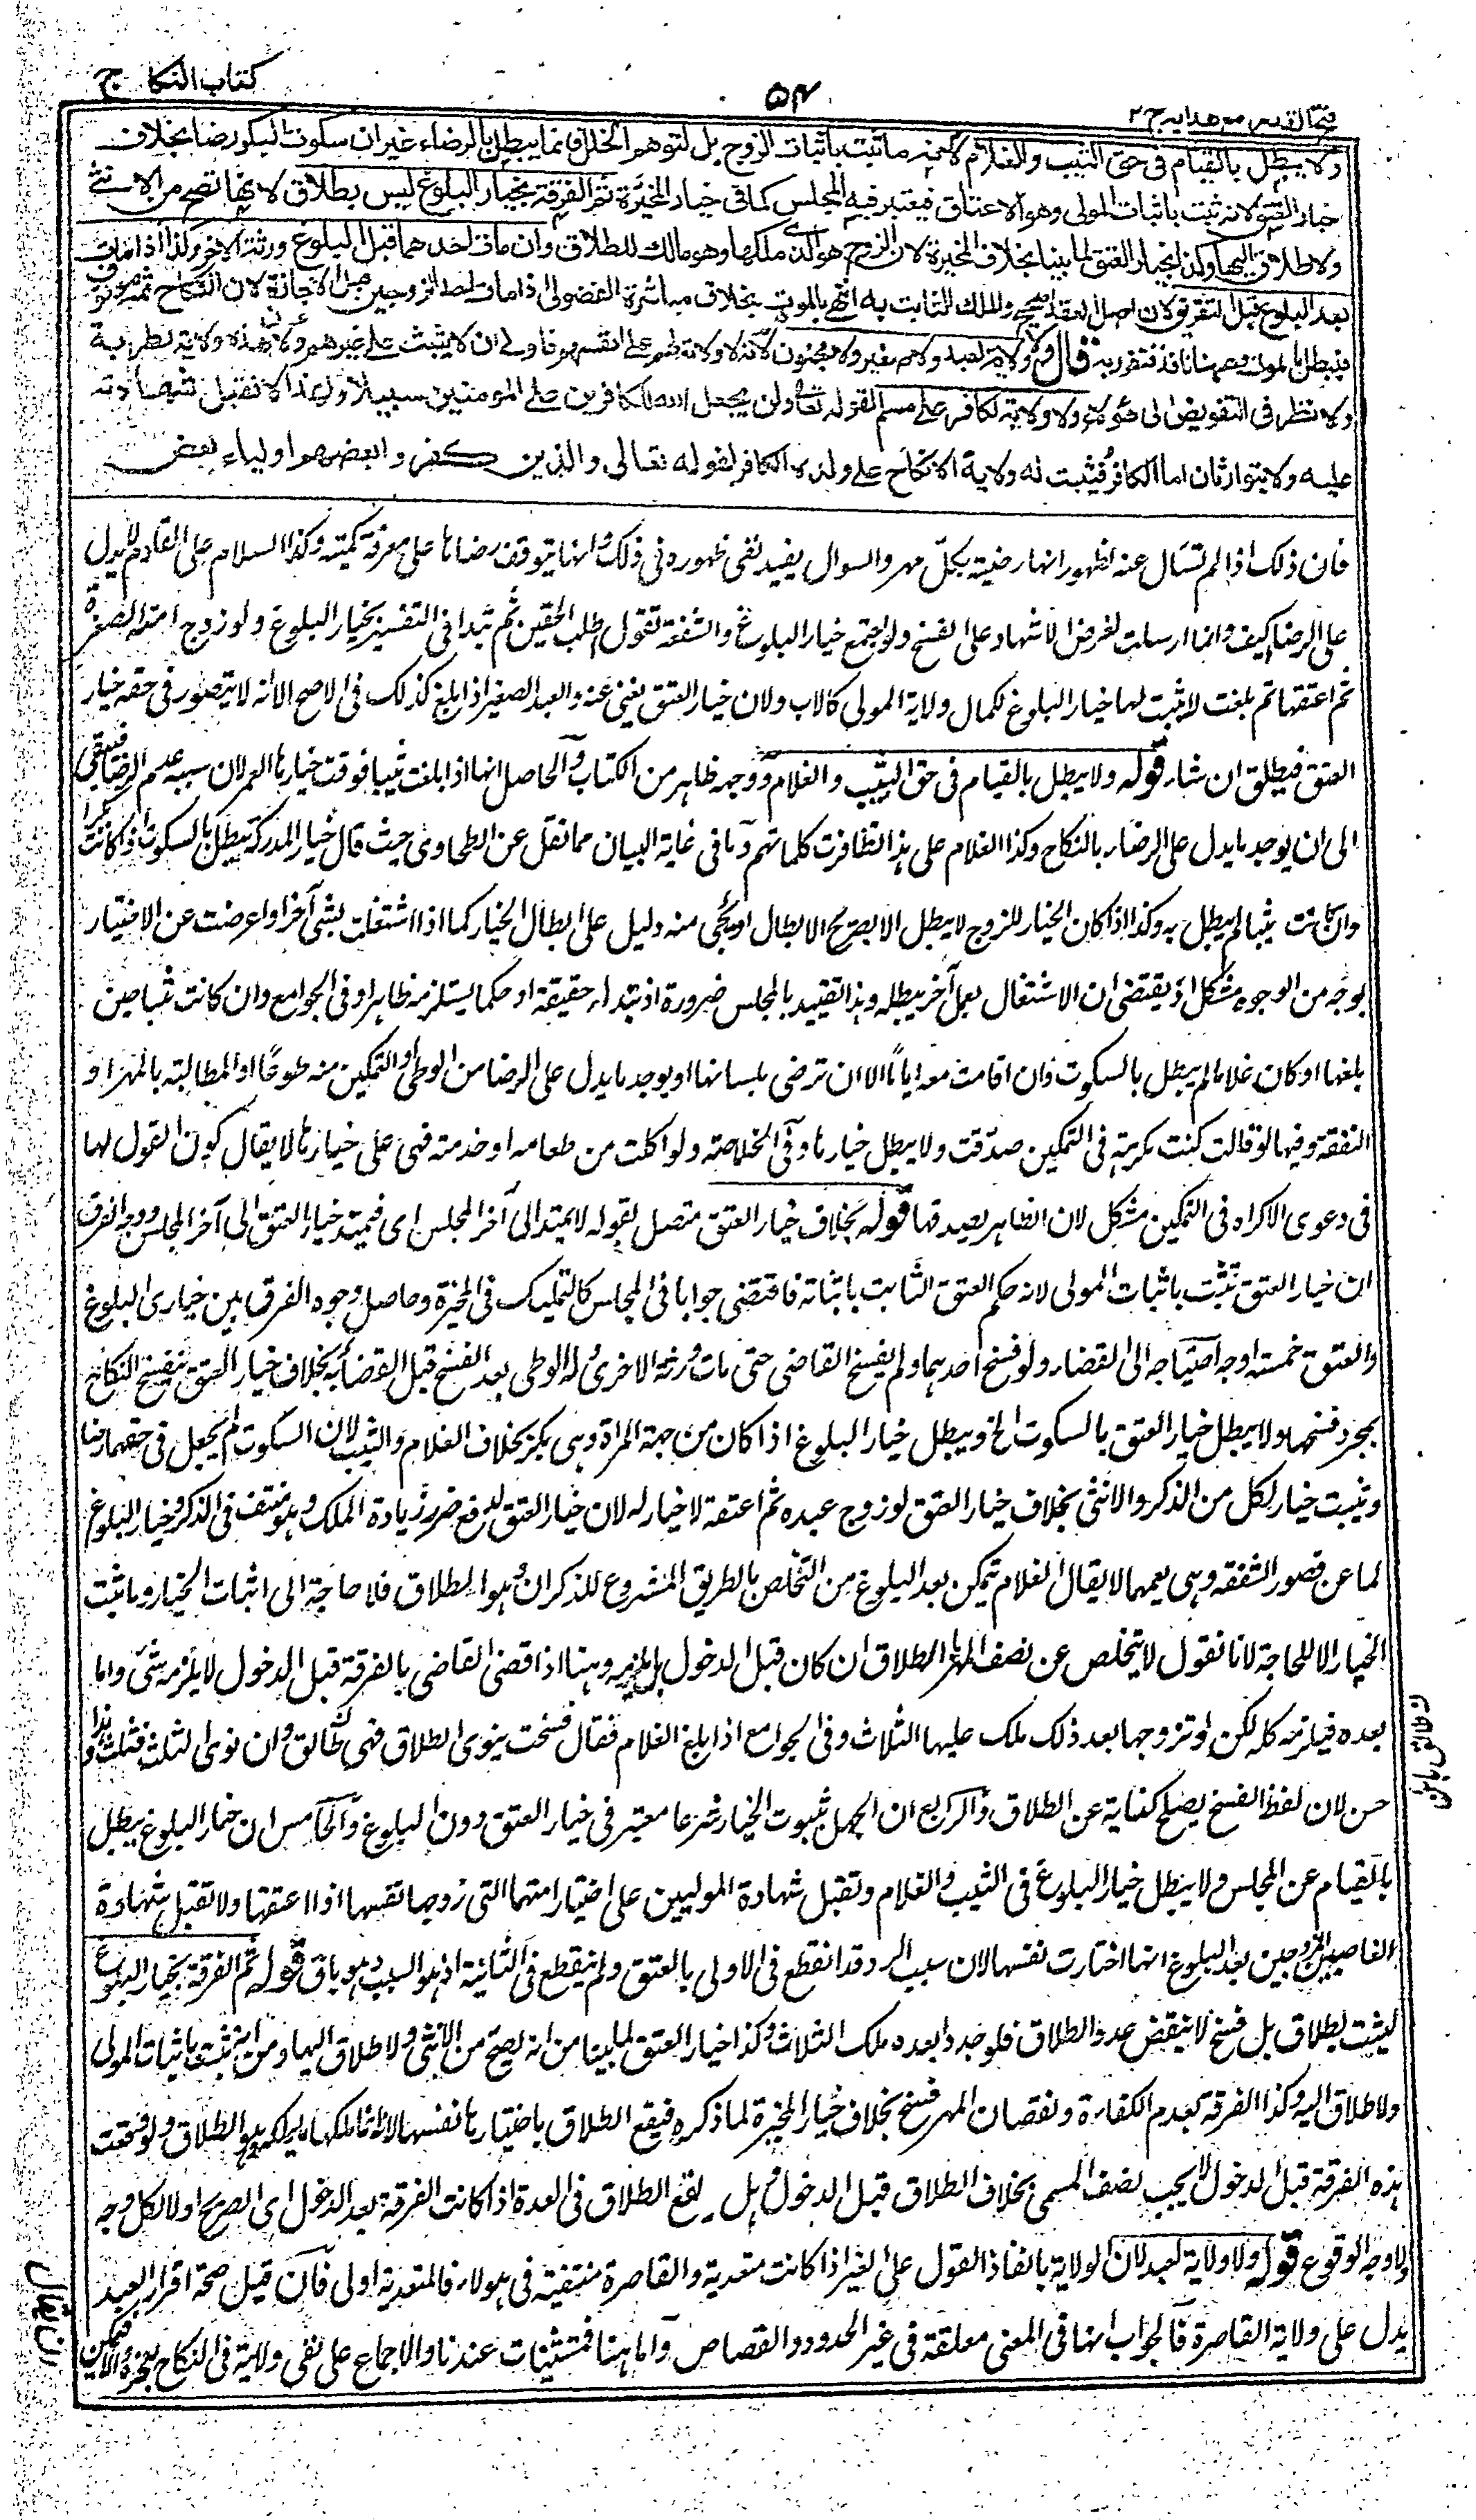 كتاب النكاح
٥٤
فتح القدير مع هدايه ج ٢
ولا يبطل بالقيام فى حق الثيب والغلام لانه ما ثبت باثبات الزوج بل لتوهم الخلل فانما يبطل بالرضاء غير ان سكوت البكر رضا بخلاف
خيار العتق لانه ثبت باثبات المولى وهو الاعتاق فيعتبر فيه المجلس كما فى خيار المخيّرة ثم الفرقة بخيار البلوغ ليس بطلاق لانها تصح من الانثى
ولا طلاق اليها وكذا بخيار العتق لما بينا بخلاف المخيرة لان الزوج هو الذى ملكها وهو مالك للطلاق وان مات احدهما قبل البلوغ ورثه الاخر وكذا اذا مات
بعد البلوغ قبل التفريق لان اصل العقد صحيح والملك الثابت به انتهى بالموت بخلاف مباشرة الفضولى اذا مات احد الزوجين قبل الاجازة لان النكاح ثمه موقوف
فيبطل بالموت وههنا نافذ فتقرر به قال ولا ولاية لعبد ولا صغير ولا مجنون لانه لا ولاية لهم على انفسهم فاولى ان لا يثبت على غيرهم ولان هذه ولاية نظرية
ولا نظر فى التفويض الى هؤلاء ولا ولاية لكافر على مسلم لقوله تعالى ولن يجعل الله للكافرين على المومنين سبيلا ولهذا لا تقبل شهادته
عليه ولا يتوارثان اما الكافر فيثبت له ولاية الانكاح على ولده الكافر لقوله تعالى والذين كفروا بعضهم اولياء بعض
فان ذلك اذا لم تسأل عنه لظهور انها رضيته بكل مهر والسوال يفيد نفى ظهوره فى ذلك وانها يتوقف رضاها على معرفة كميته وكذا السلام على القادم لا يدل
على الرضا كيف وانما ارسلت لغرض الاشهاد على الفسخ ولو اجتمع خيار البلوغ والشفعة تقول اطلب الحقين ثم تبدا فى التفسير بخيار البلوغ ولو زوج امته الصغيرة
ثم اعتقها ثم بلغت لا يثبت لها خيار البلوغ لكمال ولاية المولى كالاب ولان خيار العتق يغنى عنه والعبد الصغير اذا بلغ كذلك فى الاصح الا انه لا يتصور فى حقه خيار
العتق فيطلق ان شاء قوله ولا يبطل بالقيام فى حق الثيب والغلام ووجهه ظاهر من الكتاب والحاصل انها اذا بلغت ثيبا فوقت خيارها العمر لان سببه عدم الرضا فيبقى
الى ان يوجد ما يدل على الرضاء بالنكاح وكذا الغلام على هذا تظافرت كلماتهم وما فى غاية البيان مما نقل عن الطحاوى حيث قال خيار المدركة يبطل بالسكوت اذا كانت بكرا
وان كانت ثيبا لم يبطل به وكذا اذا كان الخيار للزوج لا يبطل الا بصريح الابطال او يجىء منه دليل على ابطال الخيار كما اذا اشتغلت بشئ آخر او اعرضت عن الاختيار
بوجه من الوجوه مشكل اذ يقتضى ان الاشتغال بعمل آخر يبطله وهذا تقييد بالمجلس ضرورة اذ تبدله حقيقة او حكما يستلزمه ظاهرا وفى الجوامع وان كانت ثيبا حين
بلغها او كان غلاما لم يبطل بالسكوت وان اقامت معه اياما الا ان ترضى بلسانها او يوجد ما يدل على الرضا من الوطى والتمكين منه طوعا او المطالبة بالمهر او
النفقة وفيها لو قالت كنت مكرهة فى التمكين صدقت ولا يبطل خيارها وفى الخلاصة ولو اكلت من طعامه او خدمته فهى على خيارها لا يقال كون القول لها
فى دعوى الاكراه فى التمكين مشكل لان الظاهر يصدقها قوله بخلاف خيار العتق متصل بقوله لا يمتد الى آخر المجلس اى فيمتد خيار العتق الى آخر المجلس ووجه الفرق
ان خيار العتق تثبت باثبات المولى لانه حكم العتق الثابت باثباته فاقتضى جوابا فى المجلس كالتمليك فى المخيرة وحاصل وجوه الفرق بين خيارى البلوغ
والعتق خمسة اوجه احتياجه الى القضاء ولو فسخ احدهما ولم يفسخ القاضى حتى مات ورثه الاخر وله الوطى بعد الفسخ قبل القضاء به بخلاف خيار العتق ينفسخ النكاح
بمجرد فسخها ولا يبطل خيار العتق بالسكوت الخ ويبطل خيار البلوغ اذا كان من جهة المرأة وهى بكر بخلاف الغلام والثيب لان السكوت لم يجعل فى حقهما رضا
ويثبت خيار لكل من الذكر والانثى بخلاف خيار العتق لو زوج عبده ثم اعتقه لا خيار له لان خيار العتق لدفع ضرر زيادة الملك وهو منتف فى الذكر وخيار البلوغ
لما عن قصور الشفقة وهى يعمهما لا يقال الغلام يتمكن بعد البلوغ من التخلص بالطريق المشروع للذكران وهو الطلاق فلا حاجة الى اثبات الخيار وما ثبت
الخيار الا للحاجة لانا نقول لا يتخلص عن نصف المهر بالطلاق ان كان قبل الدخول بل يلزمه وهنا اذا قضى القاضى بالفرقة قبل الدخول لا يلزمه شئ واما
بعده فيلزمه كله لكن لو تزوجها بعد ذلك ملك عليها الثلاث وفى الجوامع اذا بلغ الغلام فقال فسخت ينوى الطلاق فهى طالق وان نوى الثلث فثلث وهذا
حسن لان لفظ الفسخ يصلح كناية عن الطلاق والرابع ان الجهل بثبوت الخيار شرعا معتبر فى خيار العتق دون البلوغ والخامس ان خيار البلوغ يبطل
بالقيام عن المجلس ولا يبطل خيار البلوغ فى الثيب والغلام وتقبل شهادة الموليين على اختيار امتهما التى زوجها نفسها اذا اعتقها ولا تقبل شهادة
العاصبين المزوجين بعد البلوغ انها اختارت نفسها لان سبب الرد قد انقطع فى الاولى بالعتق ولم ينقطع فى الثانية اذ هو السبب وهو باق قوله ثم الفرقة بخيار البلوغ
ليست بطلاق بل فسخ لا ينقص عدد الطلاق فلو جددا بعده ملك الثلاث وكذا خيار العتق لما بينا من انه يصح من الانثى ولا طلاق اليها ومن انه ثبت باثبات المولى
ولا طلاق اليه وكذا الفرقة بعدم الكفاءة ونقصان المهر فسخ بخلاف خيار المخيرة لما ذكره فيقع الطلاق باختيارها نفسها لانه انما ملكها ما يملكه وهو الطلاق ولو وقعت
هذه الفرقة قبل الدخول لا يجب نصف المسمى بخلاف الطلاق قبل الدخول وهل يقع الطلاق فى العدة اذا كانت الفرقة بعد الدخول اى الصريح او لا لكل وجه
والاوجه الوقوع قوله ولا ولاية لعبد لان الولاية بانفاذ القول على الغير اذا كانت متعدية والقاصرة منتفية فى هولاء فالمتعدية اولى فان قيل صحة اقرار العبد
يدل على ولاية القاصرة فالجواب انها فى المعنى معلقة فى غير الحدود والقصاص واما هنا فمستثنيات عندنا والاجماع على نفى ولايته فى النكاح لعجزه